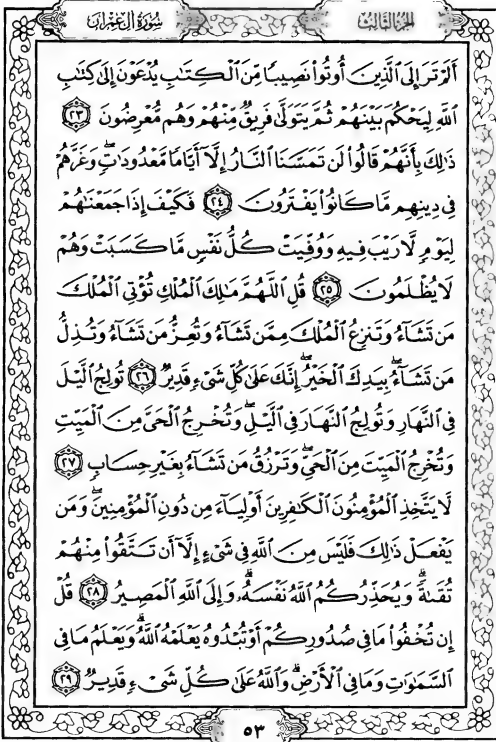 سُورَةُ آلِ عِمْرَان
الجُزْءُ الثَّالِثُ
أَلَمْ تَرَ إِلَى الَّذِينَ أُوتُوا۟ نَصِيبًا مِّنَ الْكِتَٰبِ يُدْعَوْنَ إِلَىٰ كِتَٰبِ
اللَّهِ لِيَحْكُمَ بَيْنَهُمْ ثُمَّ يَتَوَلَّىٰ فَرِيقٌ مِّنْهُمْ وَهُم مُّعْرِضُونَ ٢٣
ذَٰلِكَ بِأَنَّهُمْ قَالُوا۟ لَن تَمَسَّنَا النَّارُ إِلَّا أَيَّامًا مَّعْدُودَٰتٍ ۖ وَغَرَّهُمْ
فِى دِينِهِم مَّا كَانُوا۟ يَفْتَرُونَ ٢٤ فَكَيْفَ إِذَا جَمَعْنَٰهُمْ
لِيَوْمٍ لَّا رَيْبَ فِيهِ وَوُفِّيَتْ كُلُّ نَفْسٍ مَّا كَسَبَتْ وَهُمْ
لَا يُظْلَمُونَ ٢٥ قُلِ اللَّهُمَّ مَٰلِكَ الْمُلْكِ تُؤْتِى الْمُلْكَ
مَن تَشَآءُ وَتَنزِعُ الْمُلْكَ مِمَّن تَشَآءُ وَتُعِزُّ مَن تَشَآءُ وَتُذِلُّ
مَن تَشَآءُ ۖ بِيَدِكَ الْخَيْرُ ۖ إِنَّكَ عَلَىٰ كُلِّ شَىْءٍ قَدِيرٌ ٢٦ تُولِجُ الَّيْلَ
فِى النَّهَارِ وَتُولِجُ النَّهَارَ فِى الَّيْلِ ۖ وَتُخْرِجُ الْحَىَّ مِنَ الْمَيِّتِ
وَتُخْرِجُ الْمَيِّتَ مِنَ الْحَىِّ ۖ وَتَرْزُقُ مَن تَشَآءُ بِغَيْرِ حِسَابٍ ٢٧
لَّا يَتَّخِذِ الْمُؤْمِنُونَ الْكَٰفِرِينَ أَوْلِيَآءَ مِن دُونِ الْمُؤْمِنِينَ ۖ وَمَن
يَفْعَلْ ذَٰلِكَ فَلَيْسَ مِنَ اللَّهِ فِى شَىْءٍ إِلَّآ أَن تَتَّقُوا۟ مِنْهُمْ
تُقَىٰةً ۗ وَيُحَذِّرُكُمُ اللَّهُ نَفْسَهُۥ ۗ وَإِلَى اللَّهِ الْمَصِيرُ ٢٨ قُلْ
إِن تُخْفُوا۟ مَا فِى صُدُورِكُمْ أَوْ تُبْدُوهُ يَعْلَمْهُ اللَّهُ ۗ وَيَعْلَمُ مَا فِى
السَّمَٰوَٰتِ وَمَا فِى الْأَرْضِ ۗ وَاللَّهُ عَلَىٰ كُلِّ شَىْءٍ قَدِيرٌ ٢٩
٥٣